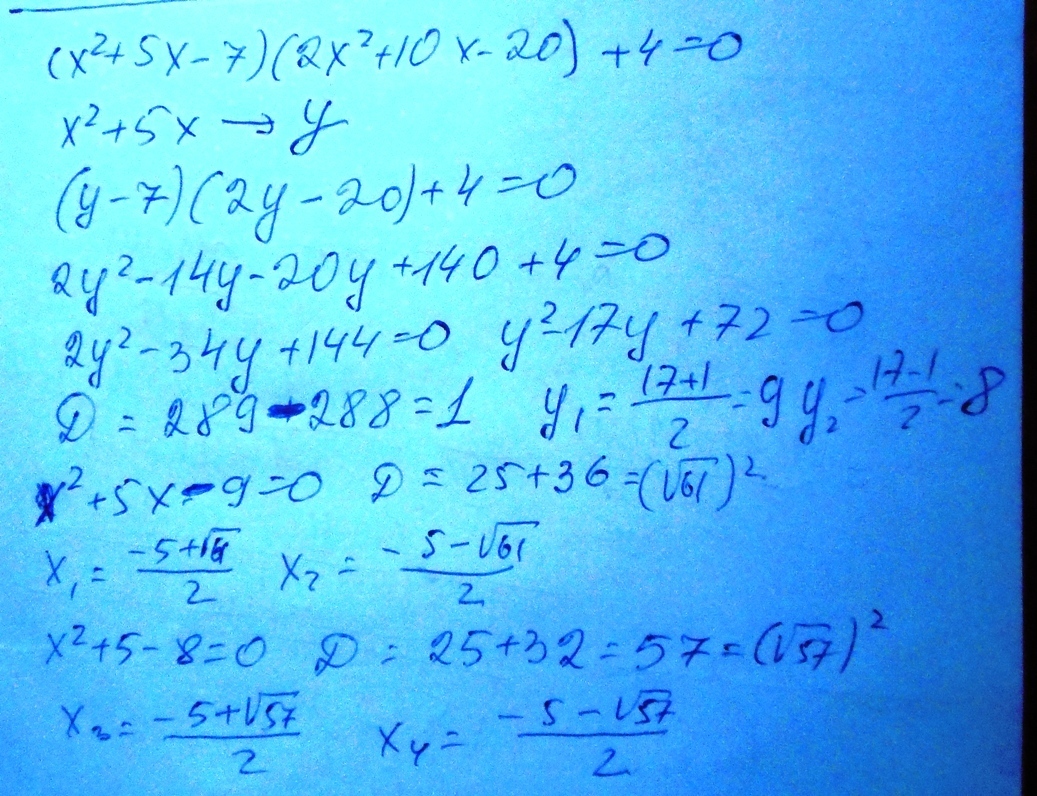 (x²+5x-7)(2x²+10x-20)+4=0
x²+5x → y
(y-7)(2y-20)+4=0
2y²-14y-20y+140+4=0
2y²-34y+144=0 y²-17y+72=0
D = 289-288=1 y₁ = (17+1)/2 = 9 y₂ = (17-1)/2 = 8
x²+5x-9=0 D = 25+36=(√61)²
x₁ = (-5+√61)/2 x₂ = (-5-√61)/2
x²+5-8=0 D = 25+32=57=(√57)²
x₃ = (-5+√57)/2 x₄ = (-5-√57)/2